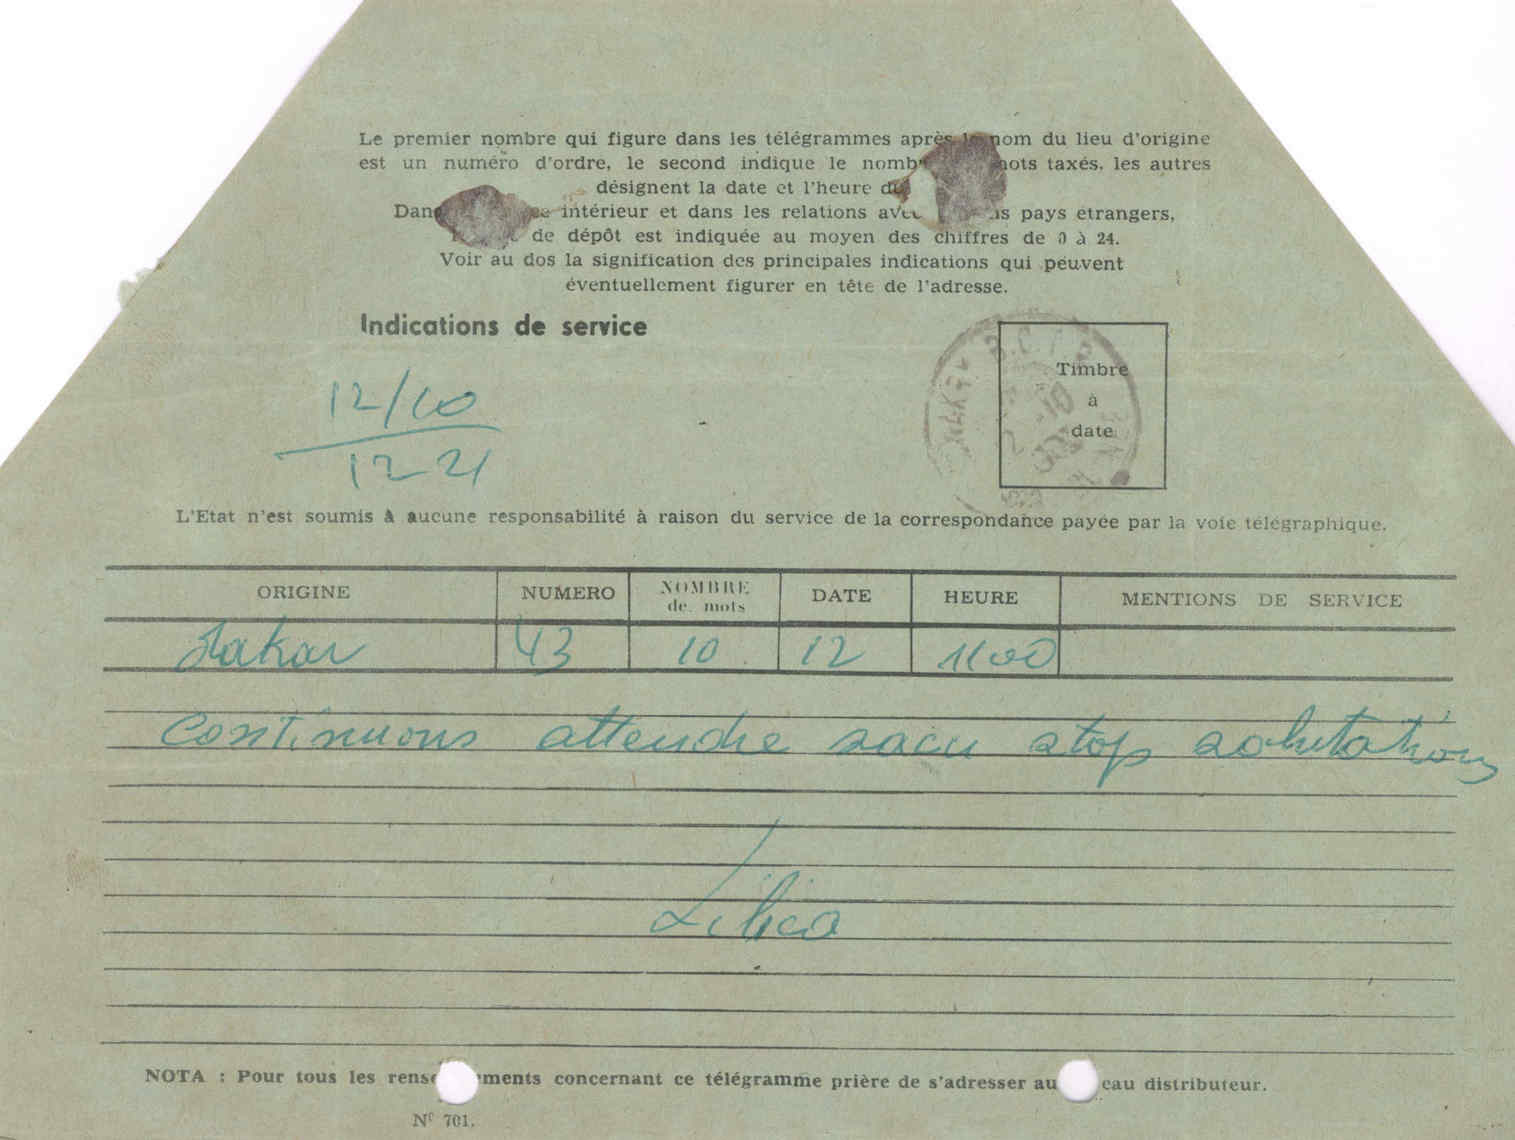 Le premier nombre qui figure dans les télégrammes après le nom du lieu d'origine
est un numéro d'ordre, le second indique le nombre mots taxés, les autres
désignent la date et l'heure
Dans intérieur et dans les relations avec pays étrangers,
de dépôt est indiquée au moyen des chiffres de 0 à 24.
Voir au dos la signification des principales indications qui peuvent
éventuellement figurer en tête de l'adresse.
Indications de service
Timbre
à
date
12/10
12 21
L'Etat n'est soumis à aucune responsabilité à raison du service de la correspondance payée par la voie télégraphique.
ORIGINE NUMERO NOMBRE de mots DATE HEURE MENTIONS DE SERVICE
Dakar 43 10 12 1100
Continuons attendre sacu stop salutations
NOTA : Pour tous les renseignements concernant ce télégramme prière de s'adresser au distributeur.
N° 701.